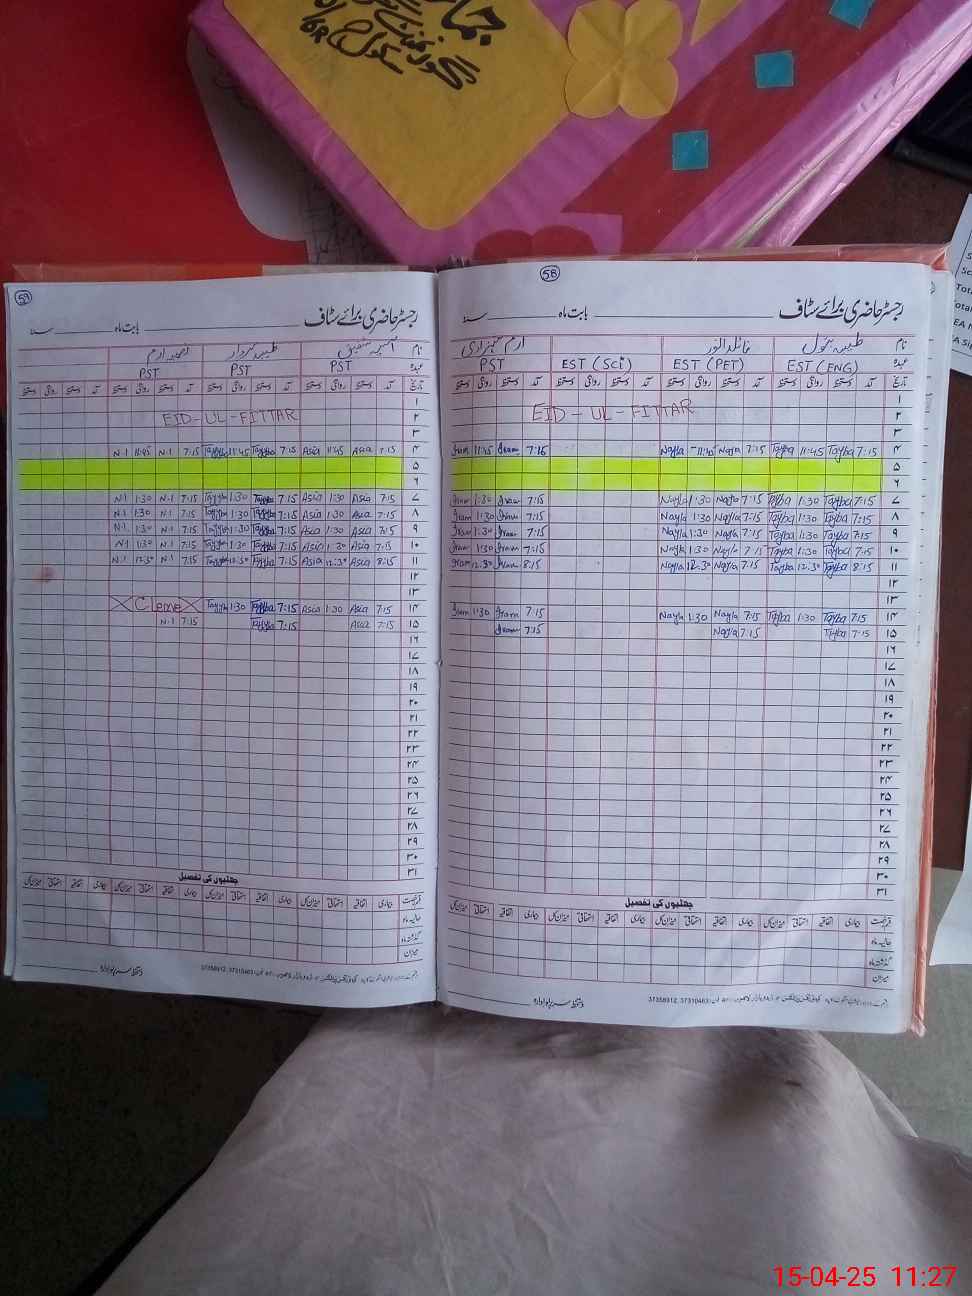 58
رجسٹر حاضری برائے سٹاف بابت ماہ سنہ
نام طیبہ بتول نائلہ انور ارم شہزادی
عہدہ EST (ENG) EST (PET) EST (Sci) PST
تاریخ آمد دستخط روانگی دستخط آمد دستخط روانگی دستخط آمد دستخط روانگی دستخط آمد دستخط روانگی دستخط
۱
۲ EID - UL - FITTAR
۳
۴ 7:15 Tayba 11:45 Tayba 7:15 Nayla 11:45 Nayla 7:15 Iram 11:45 Iram
۵
۶
۷ 7:15 Tayba 1:30 Tayba 7:15 Nayla 1:30 Nayla 7:15 Iram 1:30 Iram
۸ 7:15 Tayba 1:30 Tayba 7:15 Nayla 1:30 Nayla 7:15 Iram 1:30 Iram
۹ 7:15 Tayba 1:30 Tayba 7:15 Nayla 1:30 Nayla 7:15 Iram 1:30 Iram
۱۰ 7:15 Tayba 1:30 Tayba 7:15 Nayla 1:30 Nayla 7:15 Iram 1:30 Iram
۱۱ 8:15 Tayba 12:30 Tayba 7:15 Nayla 12:30 Nayla 8:15 Iram 12:30 Iram
۱۲
۱۳
۱۴ 7:15 Tayba 1:30 Tayba 7:15 Nayla 1:30 Nayla 7:15 Iram 1:30 Iram
۱۵ 7:15 Tayba 7:15 Nayla 7:15 Iram
۱۶
۱۷
۱۸
۱۹
۲۰
۲۱
۲۲
۲۳
۲۴
۲۵
۲۶
۲۷
۲۸
۲۹
۳۰
۳۱
چھٹیوں کی تفصیل
قسم رخصت بیماری اتفاقیہ استحقاقی میزان کل بیماری اتفاقیہ استحقاقی میزان کل بیماری اتفاقیہ استحقاقی میزان کل بیماری اتفاقیہ استحقاقی میزان کل
حالیہ ماہ
گذشتہ ماہ
میزان
37358912, 37310463
دستخط سربراہ ادارہ
59
رجسٹر حاضری برائے سٹاف بابت ماہ سنہ
نام آسیہ شفیق طیبہ سردار نجمہ ارم
عہدہ PST PST PST
تاریخ آمد دستخط روانگی دستخط آمد دستخط روانگی دستخط آمد دستخط روانگی دستخط آمد دستخط روانگی دستخط
۱
۲ EID - UL - FITTAR
۳
۴ 7:15 Asia 11:45 Asia 7:15 Tayyba 11:45 Tayyba 7:15 N.I 11:45 N.I
۵
۶
۷ 7:15 Asia 1:30 Asia 7:15 Tayyba 1:30 Tayyba 7:15 N.I 1:30 N.I
۸ 7:15 Asia 1:30 Asia 7:15 Tayyba 1:30 Tayyba 7:15 N.I 1:30 N.I
۹ 7:15 Asia 1:30 Asia 7:15 Tayyba 1:30 Tayyba 7:15 N.I 1:30 N.I
۱۰ 7:15 Asia 1:30 Asia 7:15 Tayyba 1:30 Tayyba 7:15 N.I 1:30 N.I
۱۱ 8:15 Asia 12:30 Asia 7:15 Tayyba 12:30 Tayyba 7:15 N.I 12:30 N.I
۱۲
۱۳
۱۴ 7:15 Asia 1:30 Asia 7:15 Tayyba 1:30 Tayyba C leave
۱۵ 7:15 Asia 7:15 Tayyba 7:15 N.I
۱۶
۱۷
۱۸
۱۹
۲۰
۲۱
۲۲
۲۳
۲۴
۲۵
۲۶
۲۷
۲۸
۲۹
۳۰
۳۱
چھٹیوں کی تفصیل
قسم رخصت بیماری اتفاقیہ استحقاقی میزان کل بیماری اتفاقیہ استحقاقی میزان کل بیماری اتفاقیہ استحقاقی میزان کل بیماری اتفاقیہ استحقاقی میزان کل
حالیہ ماہ
گذشتہ ماہ
میزان
37358912, 37310463
دستخط سربراہ ادارہ
15-04-25 11:27